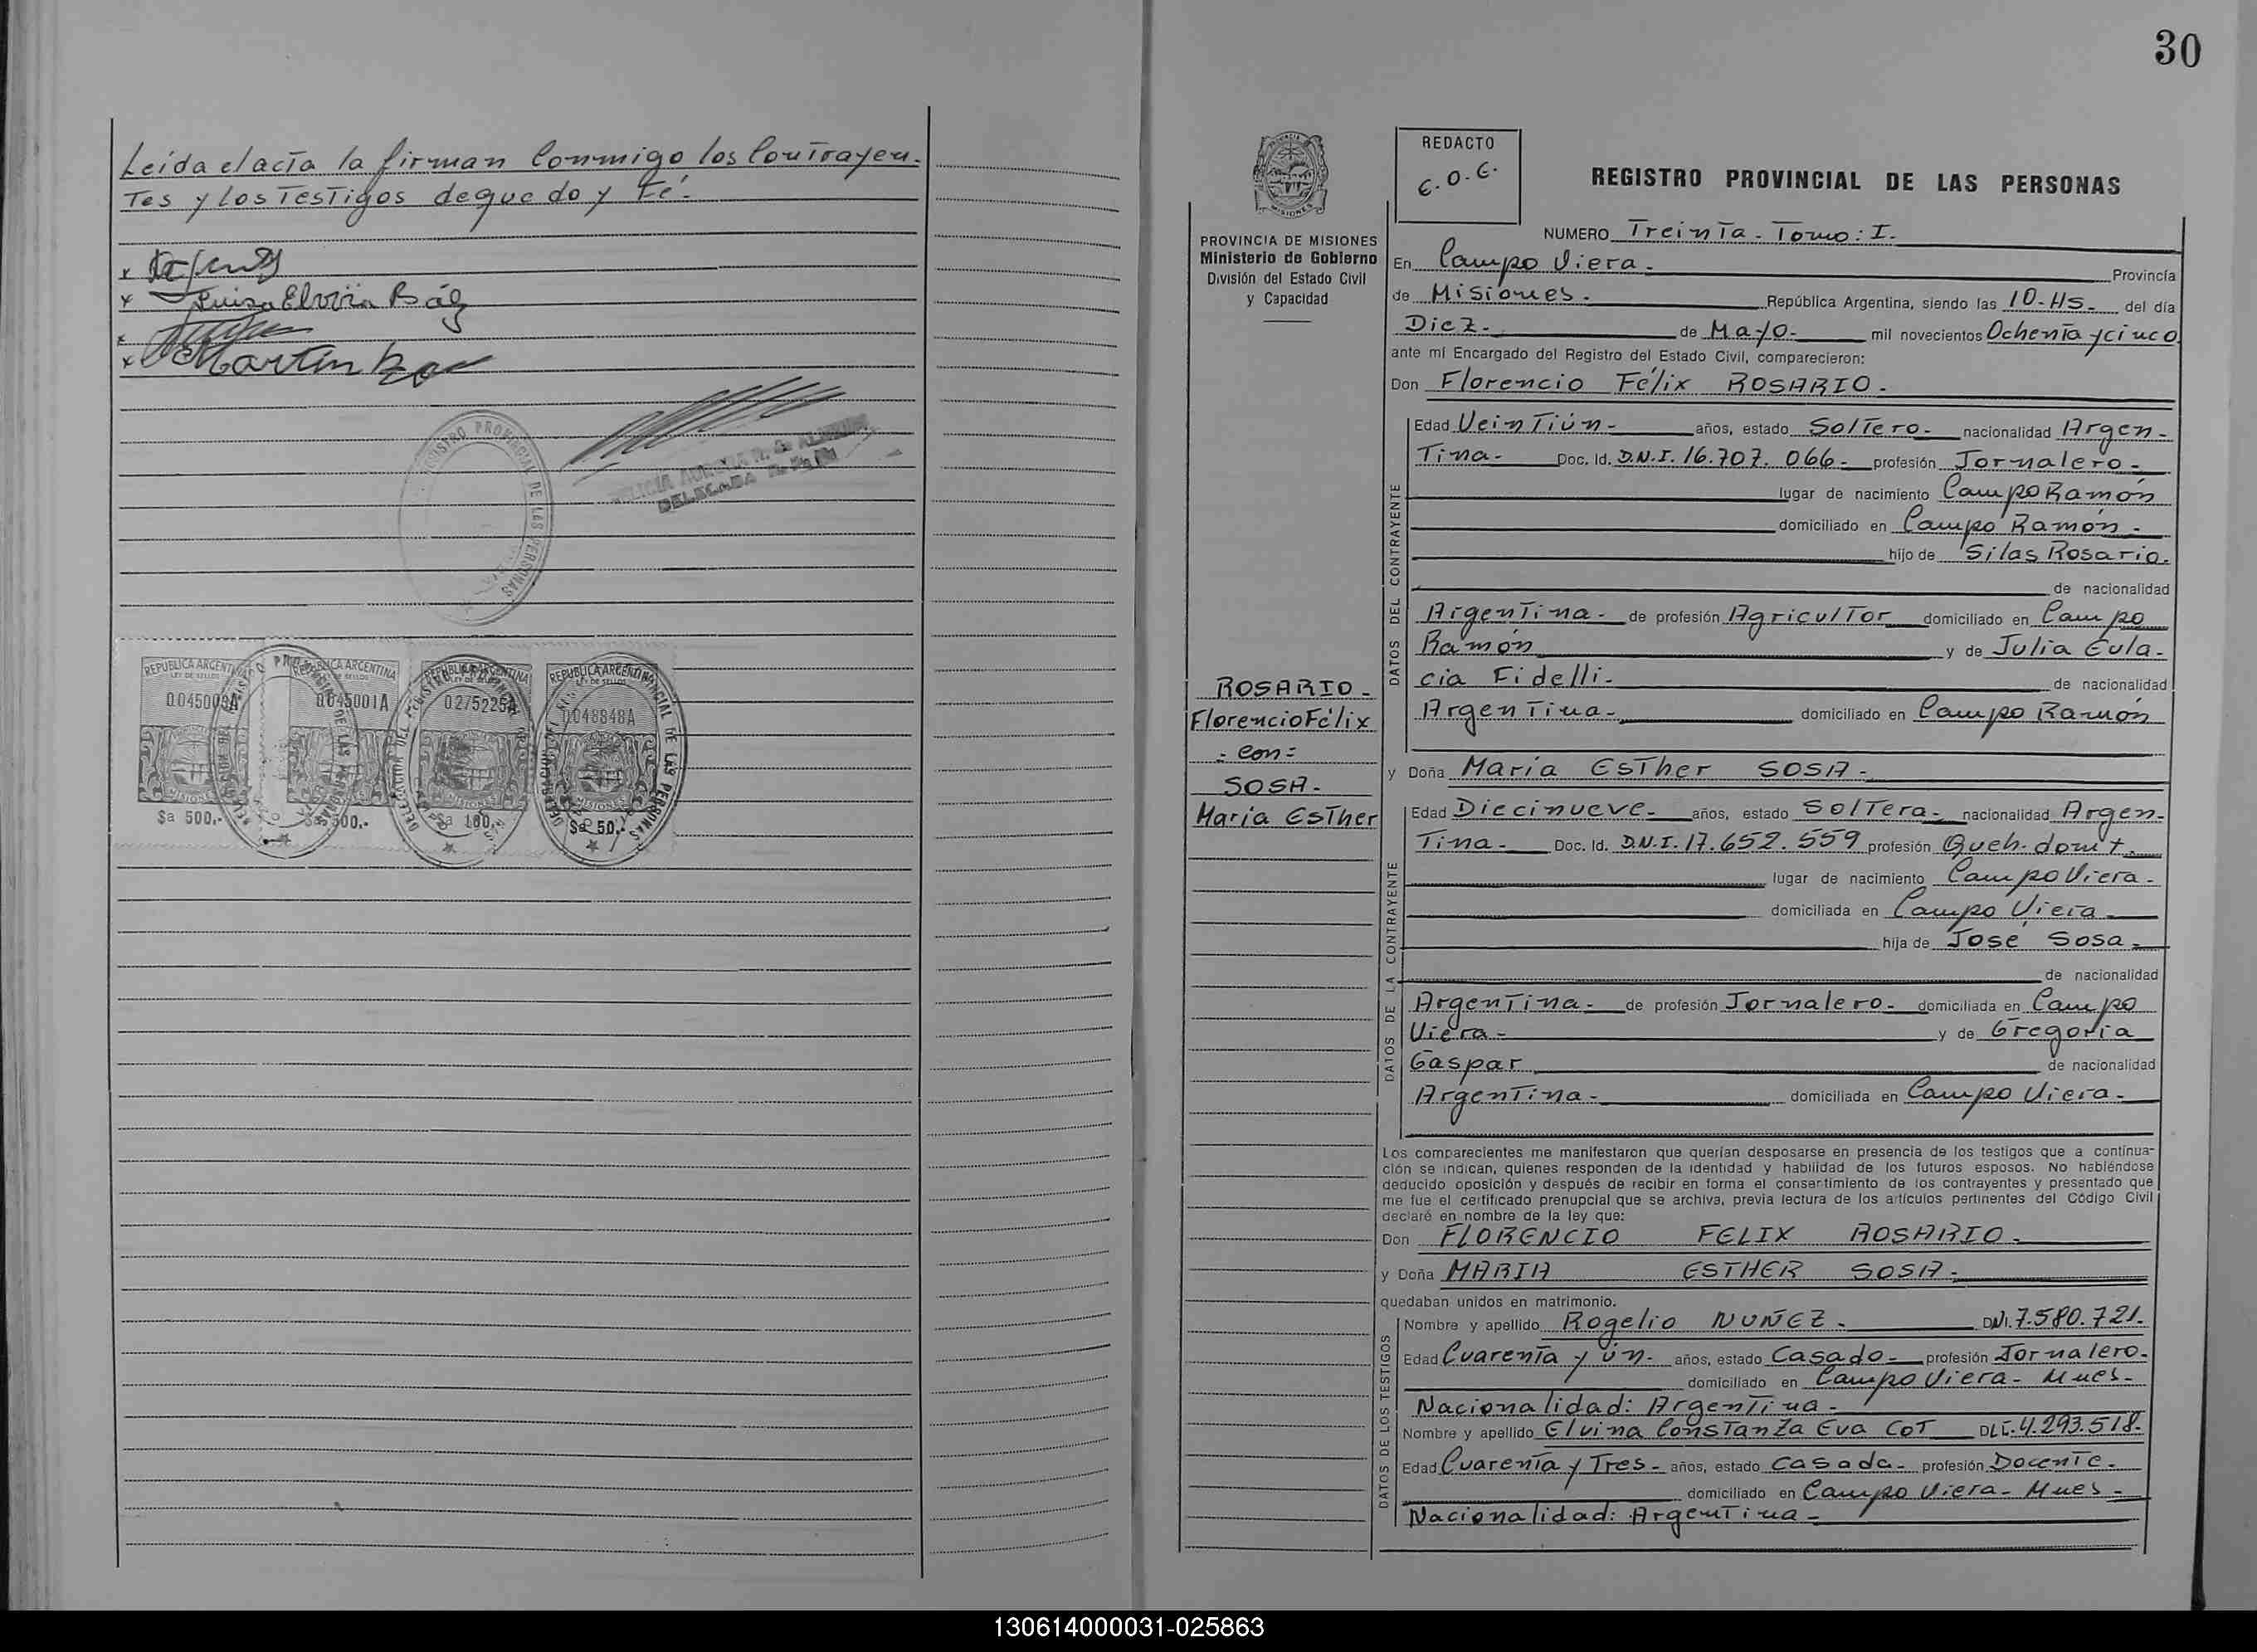 Leída el acta la firman Conmigo los Contrayen-
Tes y los Testigos de que doy Fé.-
x
x Luisa Elvira Báez
x
x Martin
REGISTRO PROVINCIAL DE LAS PERSONAS
DELEGADA
REPUBLICA ARGENTINA REPUBLICA ARGENTINA REPUBLICA ARGENTINA REPUBLICA ARGENTINA
LEY DE SELLOS
0045001A 0275225A 0048848A
MISIONES
$a 500,- $a 500,- $a 100,- $a 50,-
30
REDACTO
E.O.E.
REGISTRO PROVINCIAL DE LAS PERSONAS
PROVINCIA DE MISIONES
Ministerio de Gobierno
División del Estado Civil
y Capacidad
NUMERO Treinta - Tomo: I.
En Campo Viera.- Provincia
de Misiones.- República Argentina, siendo las 10-Hs- del día
Diez.- de Mayo.- mil novecientos Ochenta y cinco
ante mi Encargado del Registro del Estado Civil, comparecieron:
Don Florencio Félix ROSARIO.-
DATOS DEL CONTRAYENTE
Edad Veintiún- años, estado Soltero.- nacionalidad Argen-
Tina.- Doc. Id. D.N.I. 16.707.066.- profesión Jornalero.-
lugar de nacimiento Campo Ramón
domiciliado en Campo Ramón.-
hijo de Silas Rosario.
de nacionalidad
Argentina.- de profesión Agricultor domiciliado en Campo
Ramón y de Julia Eula-
cia Fidelli.- de nacionalidad
Argentina.- domiciliado en Campo Ramón
ROSARIO -
Florencio Félix
-: con :-
SOSA -
María Esther
y Doña María Esther SOSA.-
DATOS DE LA CONTRAYENTE
Edad Diecinueve.- años, estado Soltera.- nacionalidad Argen-
Tina.- Doc. Id. D.N.I. 17.652.559 profesión Queh. domt.
lugar de nacimiento Campo Viera.-
domiciliada en Campo Viera
hija de José Sosa.-
de nacionalidad
Argentina.- de profesión Jornalero.- domiciliada en Campo
Viera.- y de Gregoria
Gaspar de nacionalidad
Argentina.- domiciliada en Campo Viera.-
Los comparecientes me manifestaron que querían desposarse en presencia de los testigos que a continua-
ción se indican, quienes responden de la identidad y habilidad de los futuros esposos. No habiéndose
deducido oposición y después de recibir en forma el consentimiento de los contrayentes y presentado que
me fue el certificado prenupcial que se archiva, previa lectura de los artículos pertinentes del Código Civil
declaré en nombre de la ley que:
Don FLORENCIO FELIX ROSARIO.-
y Doña MARIA ESTHER SOSA.-
quedaban unidos en matrimonio.
DATOS DE LOS TESTIGOS
Nombre y apellido Rogelio NUÑEZ.- DNI.7.580.721.-
Edad Cuarenta y ún.- años, estado Casado.- profesión Jornalero.-
domiciliado en Campo Viera- Mnes-
Nacionalidad: Argentina.-
Nombre y apellido Elvina Constanza Eva COT DLC.4.293.518.-
Edad Cuarenta y Tres.- años, estado Casada.- profesión Docente.-
domiciliado en Campo Viera- Mnes-
Nacionalidad: Argentina.-
130614000031-025863